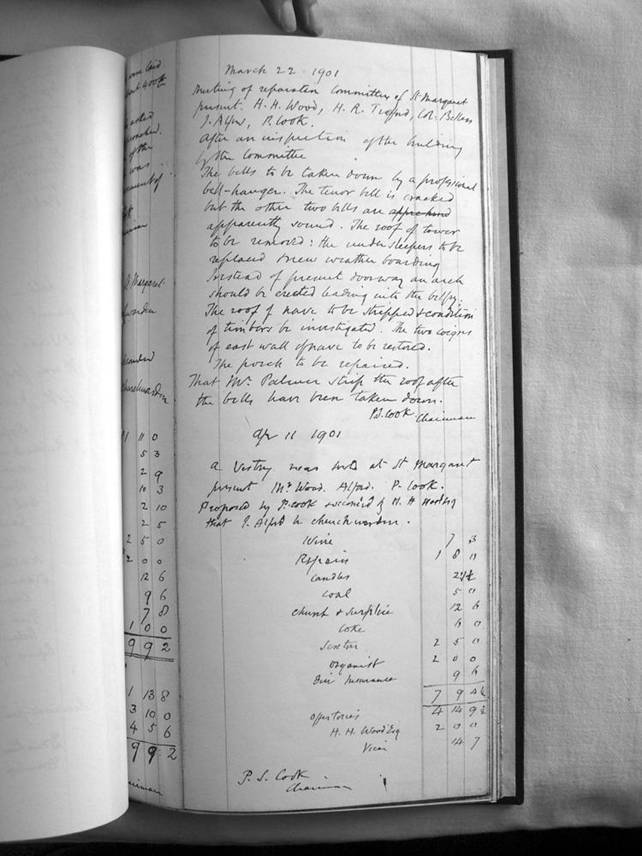 March 22 1901
Meeting of reparation Committee of St Margaret
present. H. H. Wood, H. R. Col. Bellers
J. Alford, P. Cook.
After an inspection of the building
by the Committee
The bells to be taken down by a professional
bell-hanger. The tenor bell is cracked
but the other two bells are
apparently sound. The roof of tower
to be removed: the under sleepers to be
replaced & new weather boarding
Instead of present doorway an arch
should be erected leading into the belfry.
The roof of nave to be stripped & condition
of timbers be investigated. The two coigns
of east wall of nave to be restored.
The porch to be repaired.
That Mr. Palmer strip the roof after
the bells have been taken down.
P.S. Cook Chairman
Apr 11 1901
A Vestry was held at St Margaret
present Mr Wood. Alford. P. Cook.
Proposed by P. Cook & seconded by H. H.
that J. Alford be churchwarden.
Wine 7 3
Repairs 1 8 0
Candles
Coal 5 0
Church & Surplice 12 6
Coke 6 0
Sexton 2 5 0
Organist 2 0 0
Fire Insurance 9 6
7 9 4½
Offertories 4 14 9½
H. H. Wood Esq 2 0 0
Vicar 14 7
P. S. Cook
Chairman
11 0
5 3
2 9
10 3
2 10
2 5
2 5 0
2 0 0
12 6
9 6
7 8
1 0 0
9 9 2
1 13 8
3 10 0
4 5 6
9 9 2